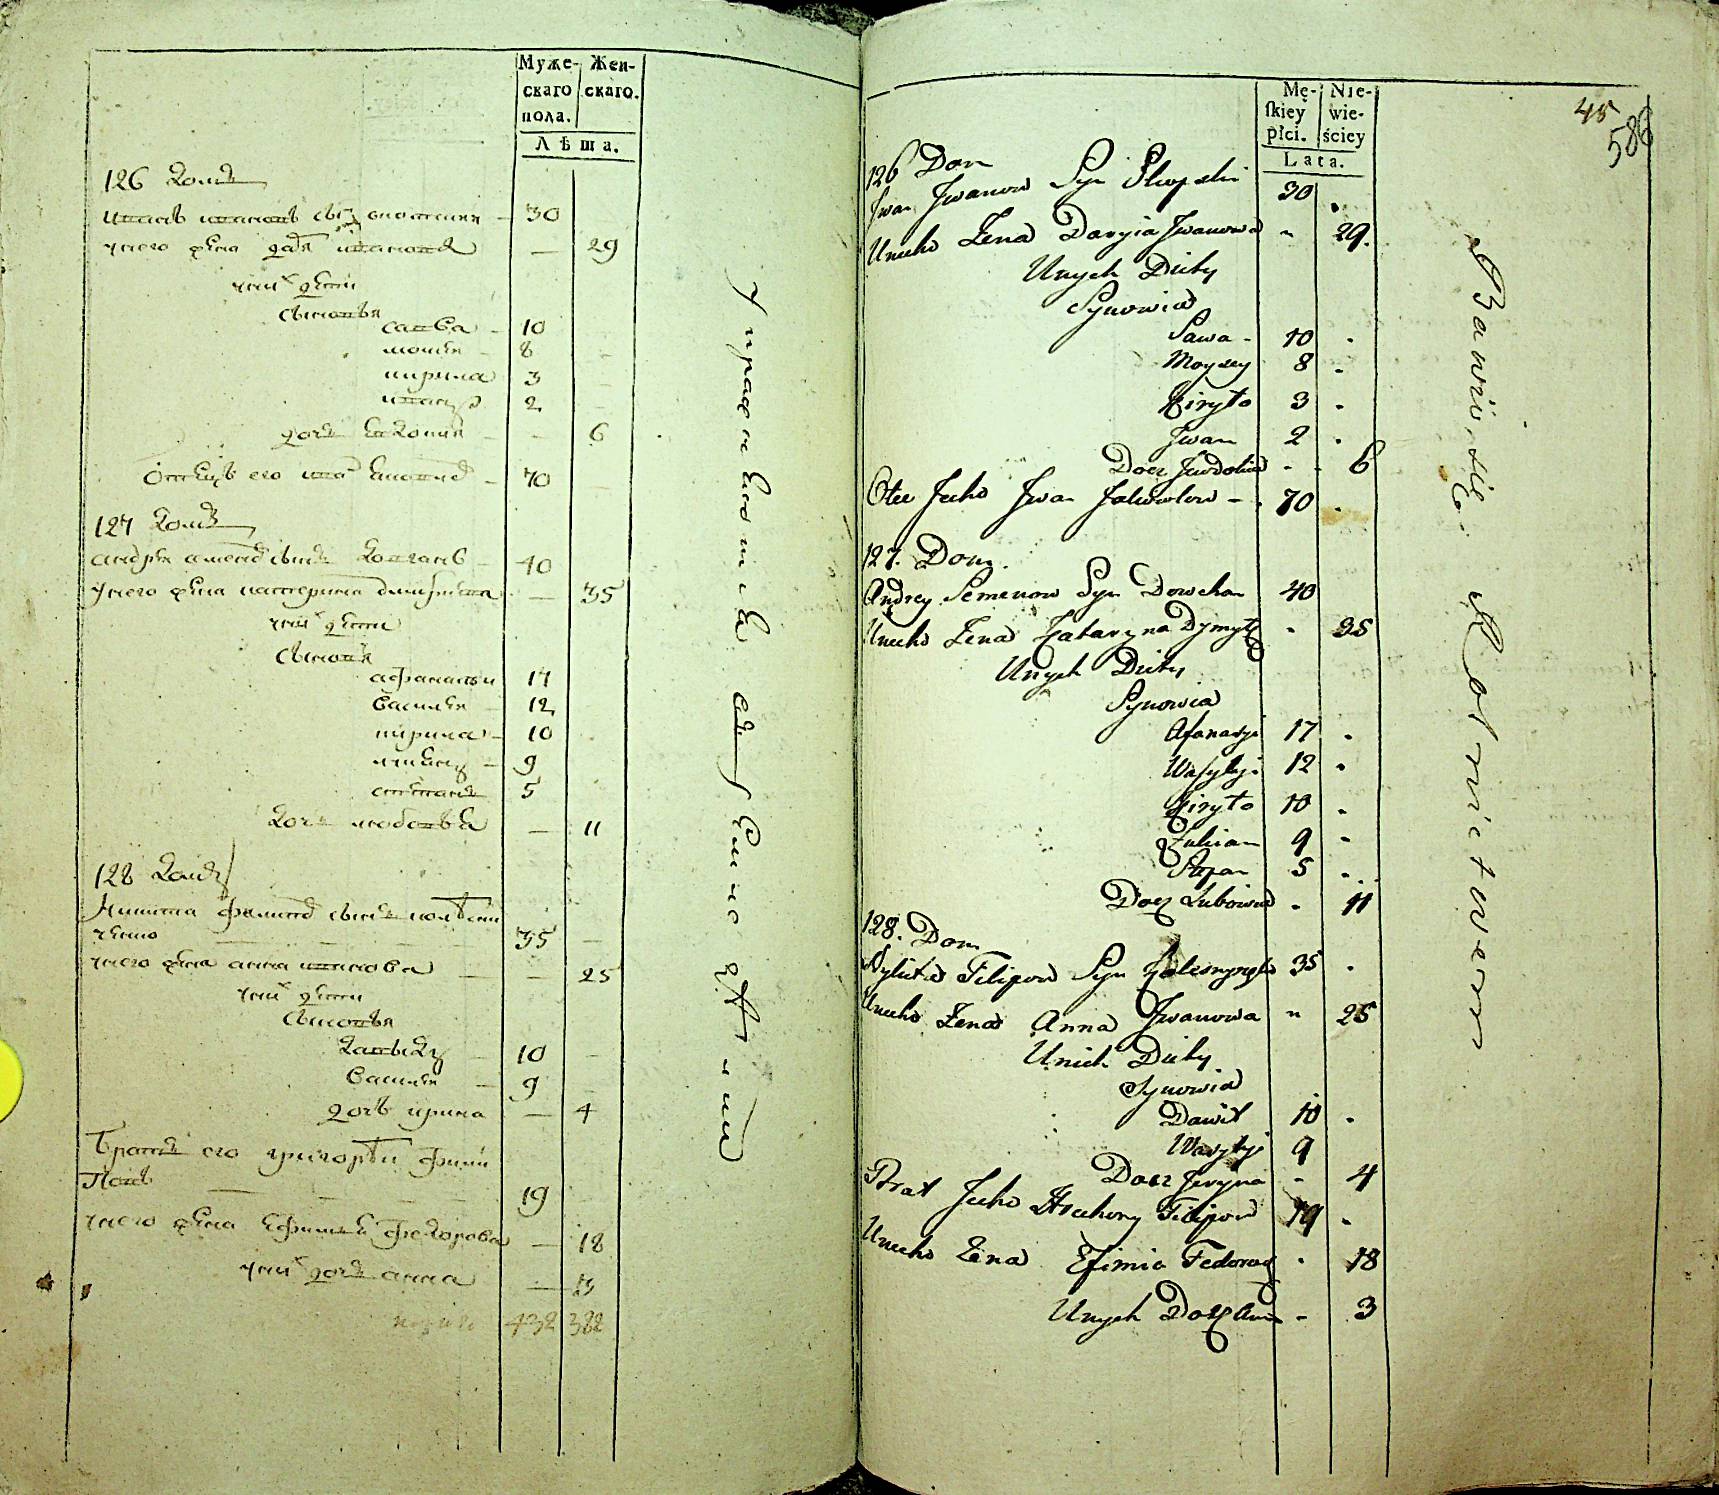 Муже-
скаго
пола.
Жен-
скаго.
Лѣта.
126 домъ
30
унего жена дарія иванова — 29
унихъ дети
сыновья
савва – 10
8
кирила 3
иванъ 2
дочь евдокия – – 6
отецъ его 70
127 домъ
андрей семеновъ сынъ довганъ – 40
унего жена катерина дмитриева — 35
унихъ дети
сыновья
афанасеи 17
василеи – 12
кирила – 10
9
степанъ 5
дочь любовка — 11
128 домъ
Никита филиповъ сынъ
35
унего жена анна иванова — 25
унихъ дети
сыновья
давыдъ 10
василеи 9
дочь ирина — 4
братъ его григореи фили
повъ 19
унего жена ефимия федорова — 18
унихъ дочь анна — 3
432 382
Упражняются въ
Mę-
skiey
płci.
Nie-
wie-
ściey
Lata.
45
586
126 Dom
Iwan Iwanow Syn 30
Uneho Żena Daryia Iwanowa " 29.
Unych Dity
Synowia
Sawa - 10 .
Moysey 8 .
Kiryło 3 .
Iwan 2 .
Docz Jewdokia - - 6
Otec Jeho Iwan – . 70 .
127. Dom.
Andrey Semenow Syn Dowhan 40
Uneho Żena Kataryna Dymytr - 35
Unych Dity
Synowia
Afanasyi 17 .
Wasylyi 12 .
Kiryło 10 .
Julian 9 -
Stepan 5 .
Docz Lubowka - 11
128. Dom
Mykita Filipow Syn 35 .
Uneho Żena Anna Iwanowa " 25
Unich Dity
Synowia
Dawid 10 .
Wasylyi 9
Docz Jeryna - 4
Brat Jeho Hrehory Filipow 19 .
Uneho Żena Efimia Fedorow . 18
Unych Docz Anna - 3
Bawią się Rolnictwem